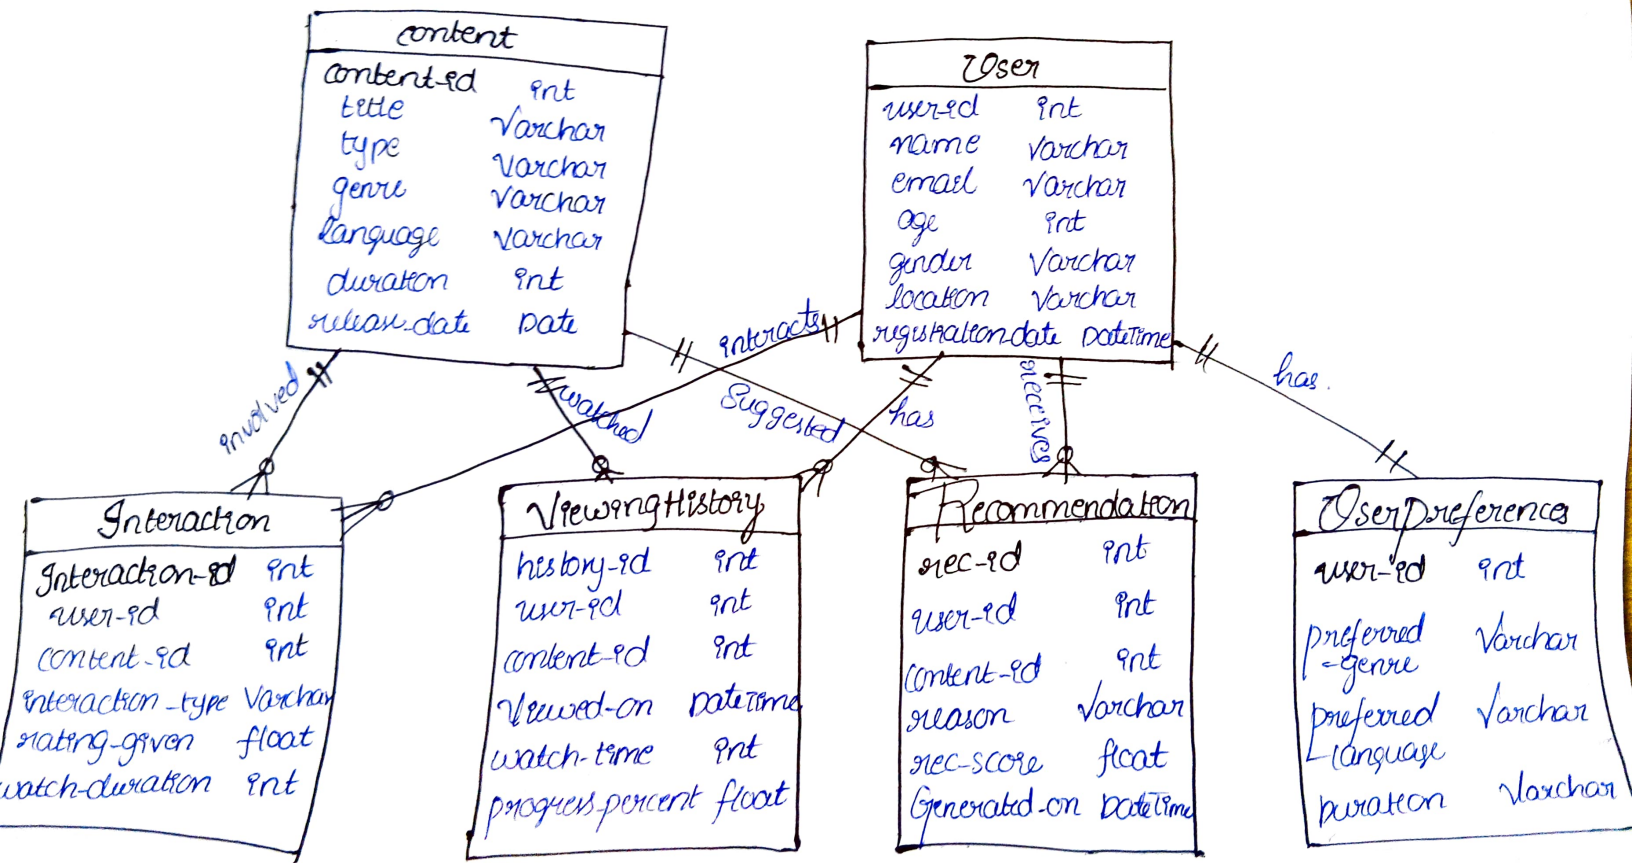 content
content-id int
title Varchar
type Varchar
genre Varchar
language Varchar
duration int
release-date Date
User
user-id int
name Varchar
email Varchar
age int
gender Varchar
location Varchar
registration-date DateTime
involved
watched
Suggested
interacts
has
receives
has.
Interaction
Interaction-id int
user-id int
content-id int
interaction-type Varchar
rating-given float
watch-duration int
ViewingHistory
history-id int
user-id int
content-id int
Viewed-on DateTime
watch-time int
progress-percent float
Recommendation
rec-id int
user-id int
content-id int
reason Varchar
rec-score float
Generated-on DateTime
UserPreferences
user-id int
preferred Varchar
-genre
preferred Varchar
-language
Duration Varchar